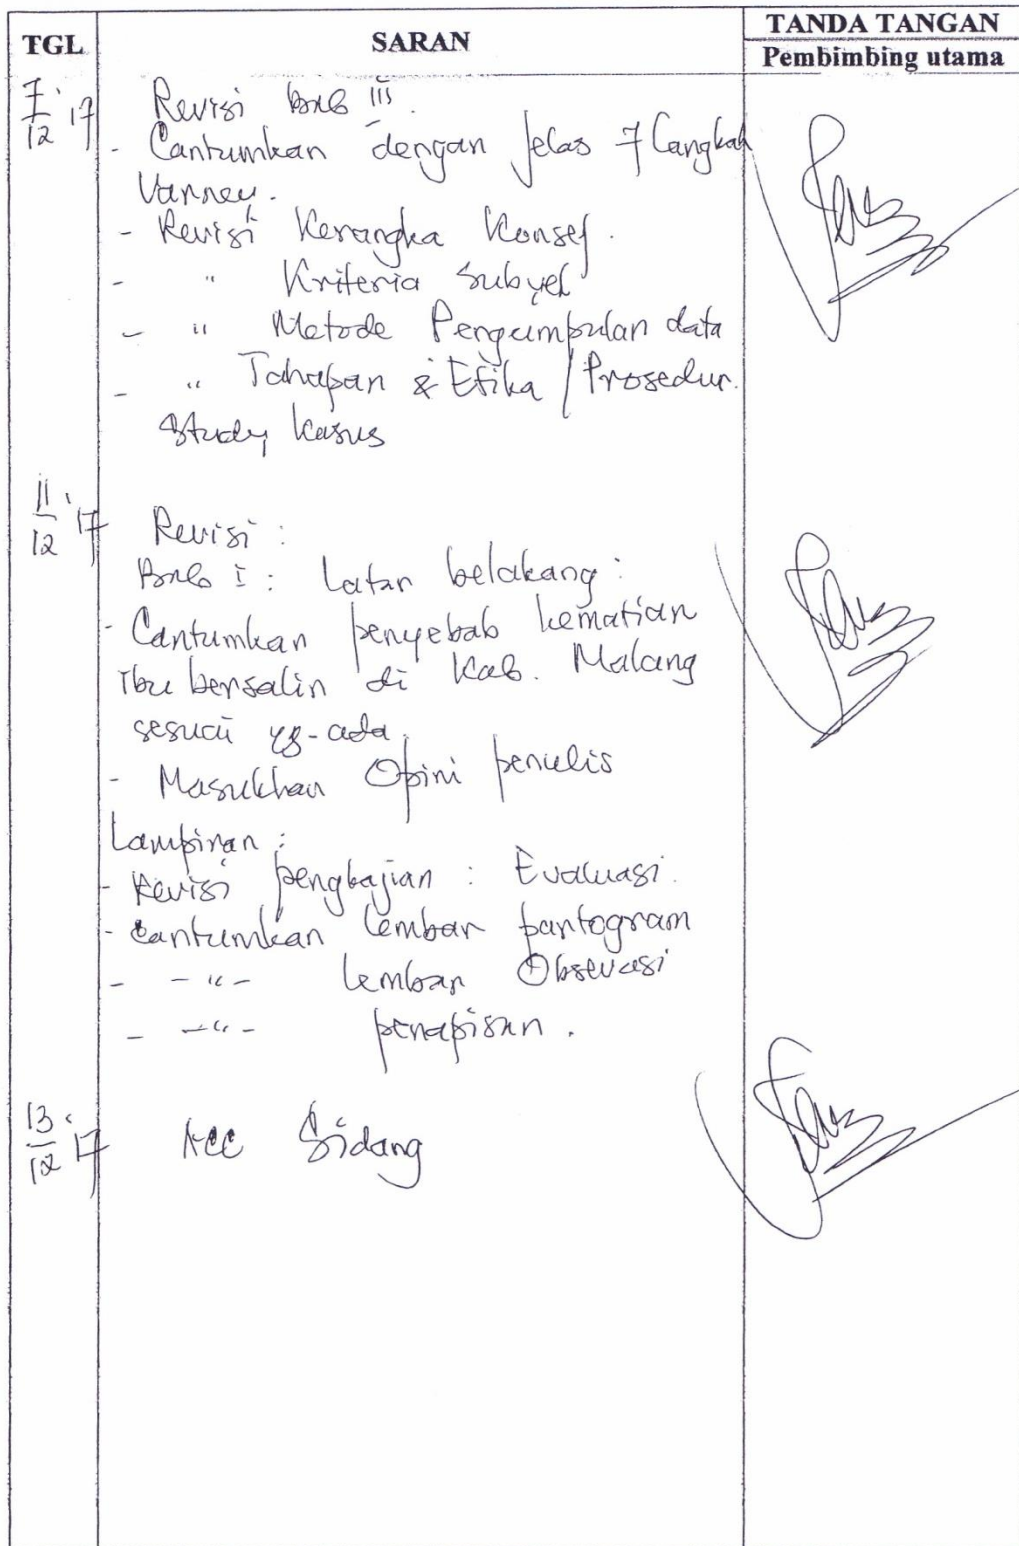 TGL SARAN TANDA TANGAN
Pembimbing utama
7/12 '17 Revisi Bab III.
- Cantumkan dengan jelas 7 langkah
Varney.
- Revisi Kerangka Konsep.
- " Kriteria subyek
- " Metode Pengumpulan data
- " Tahapan & Etika / Prosedur.
Study kasus
11/12 '17 Revisi :
Bab I : Latar belakang :
- Cantumkan penyebab kematian
Ibu bersalin di Kab. Malang
sesuai yg-ada.
- Masukkan Opini penulis
Lampiran :
- Revisi pengkajian : Evaluasi.
- Cantumkan lembar partogram
- - " - lembar Obsevasi
- - " - penapisan.
13/12 '17 Acc Sidang